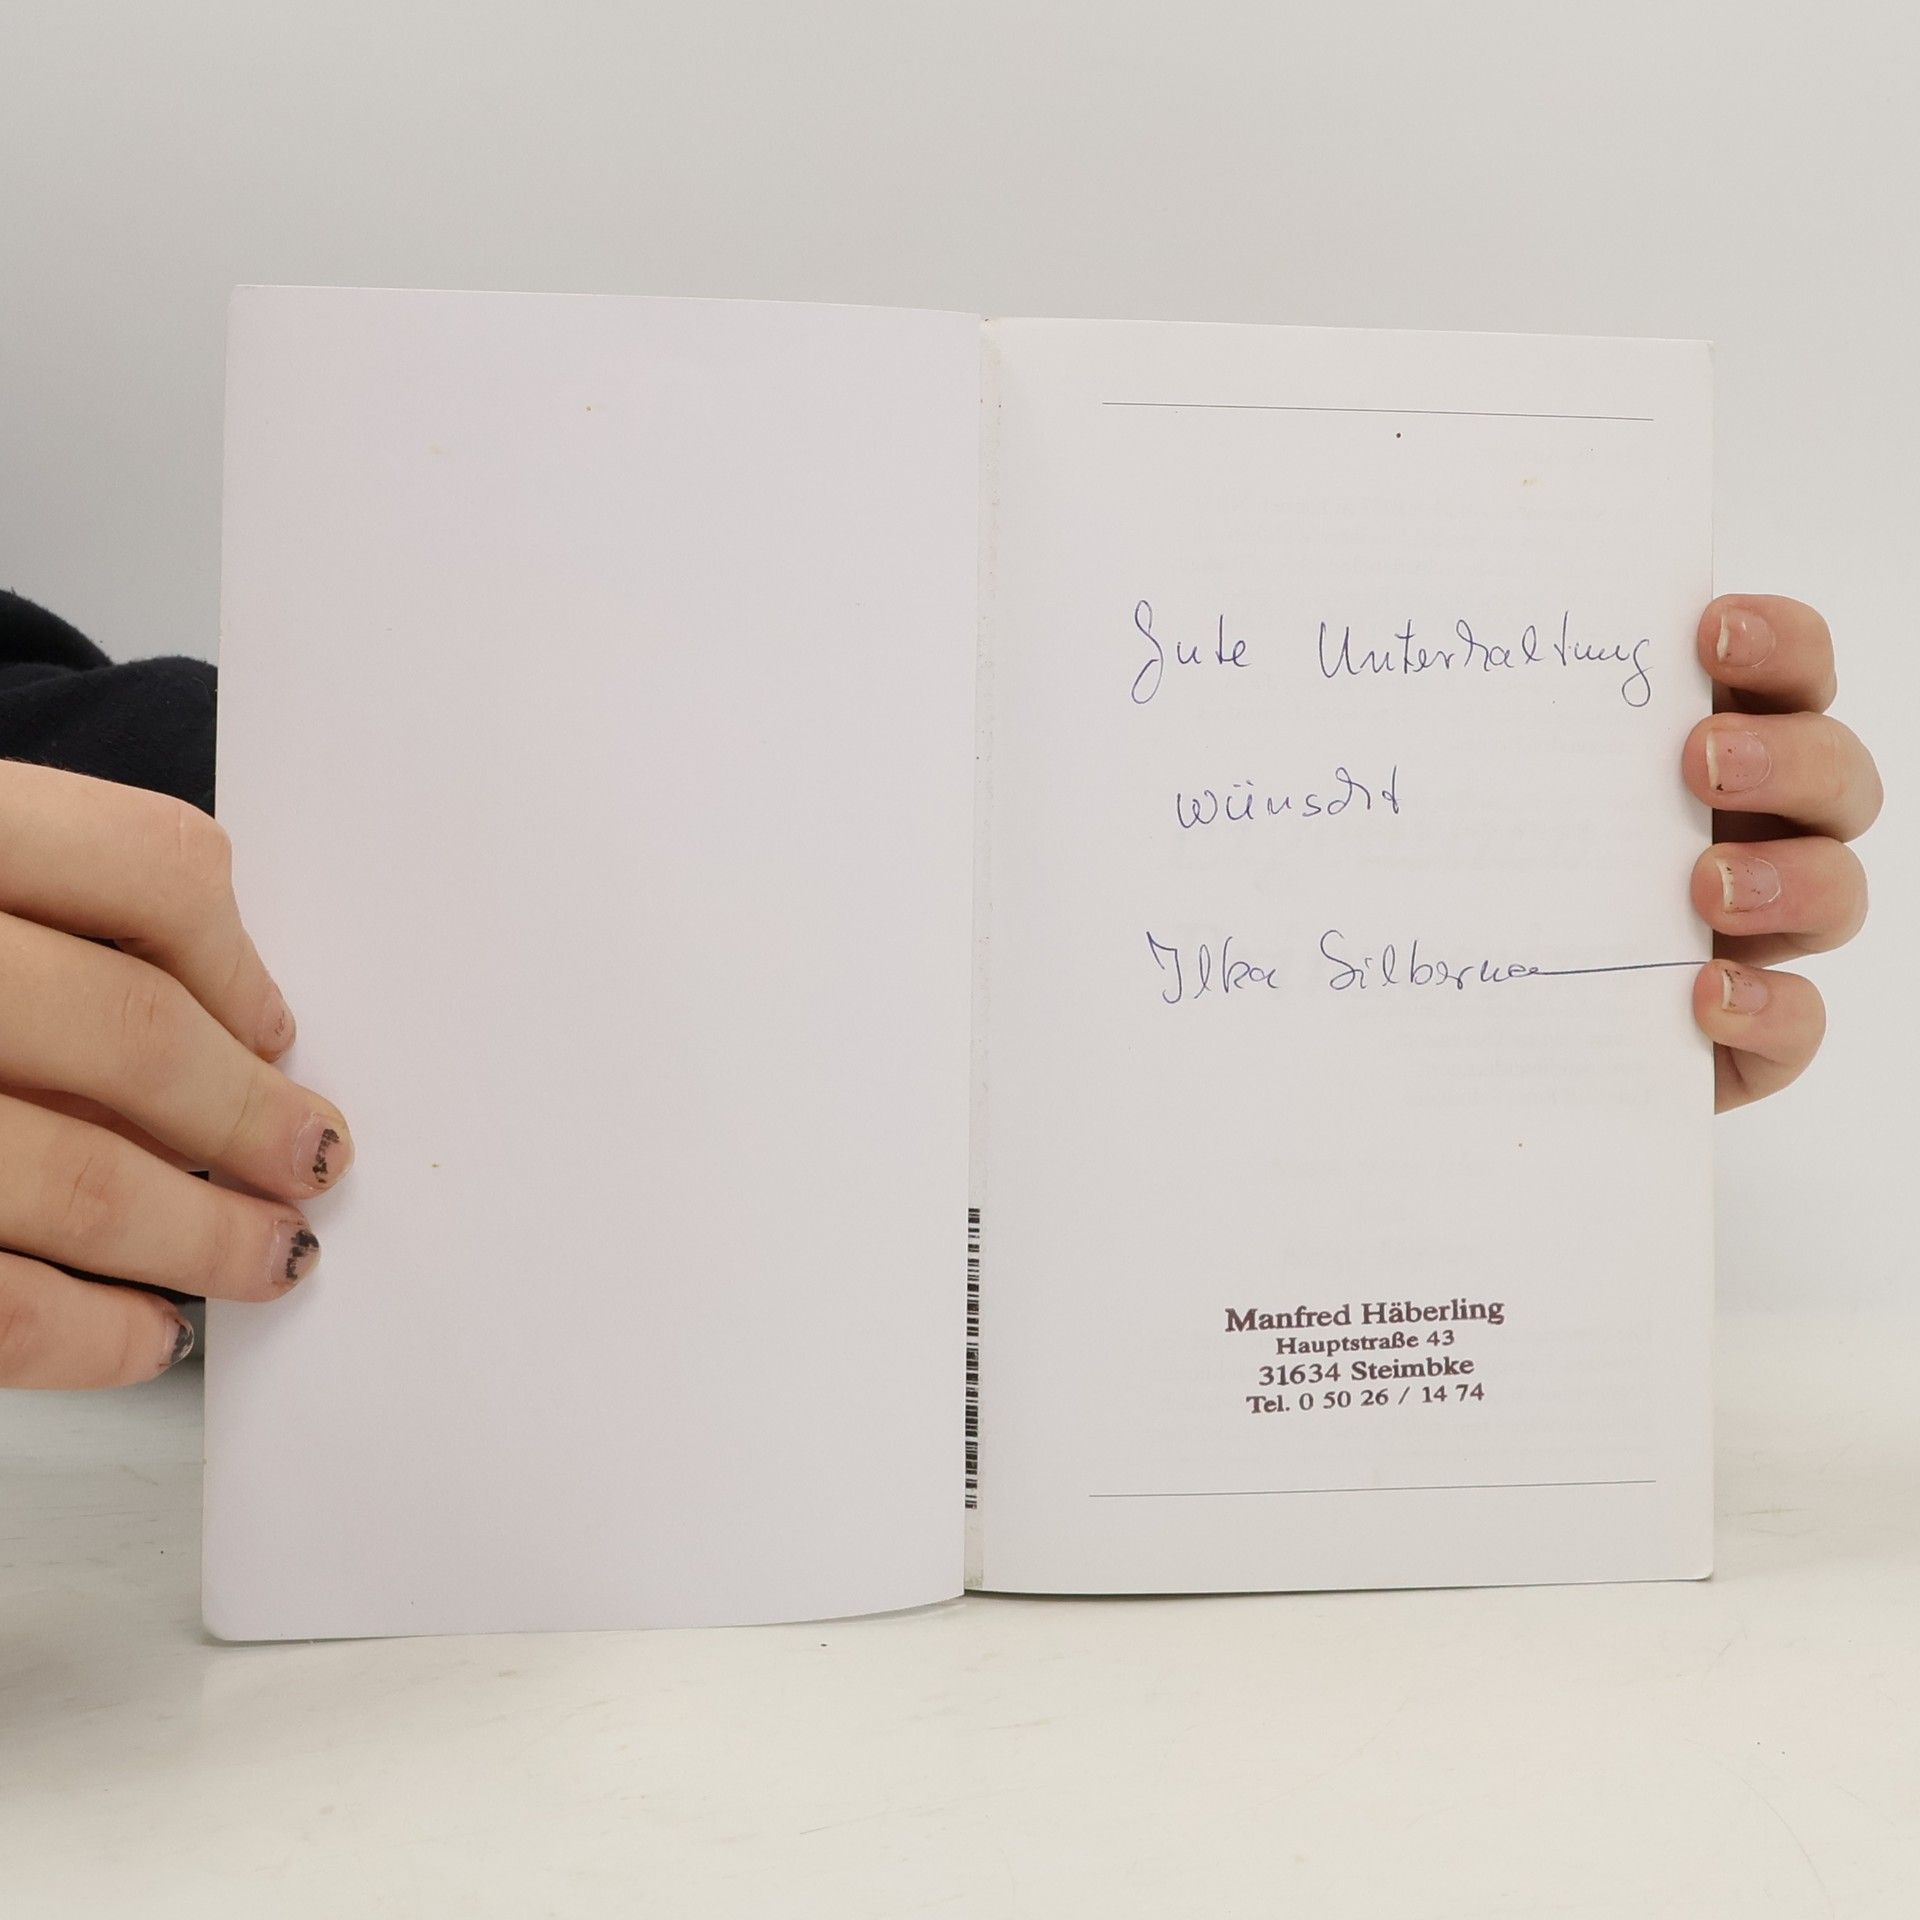 Gute Unterhaltung
wünscht
Ilka Silbermann
Manfred Häberling
Hauptstraße 43
31634 Steimbke
Tel. 0 50 26 / 14 74